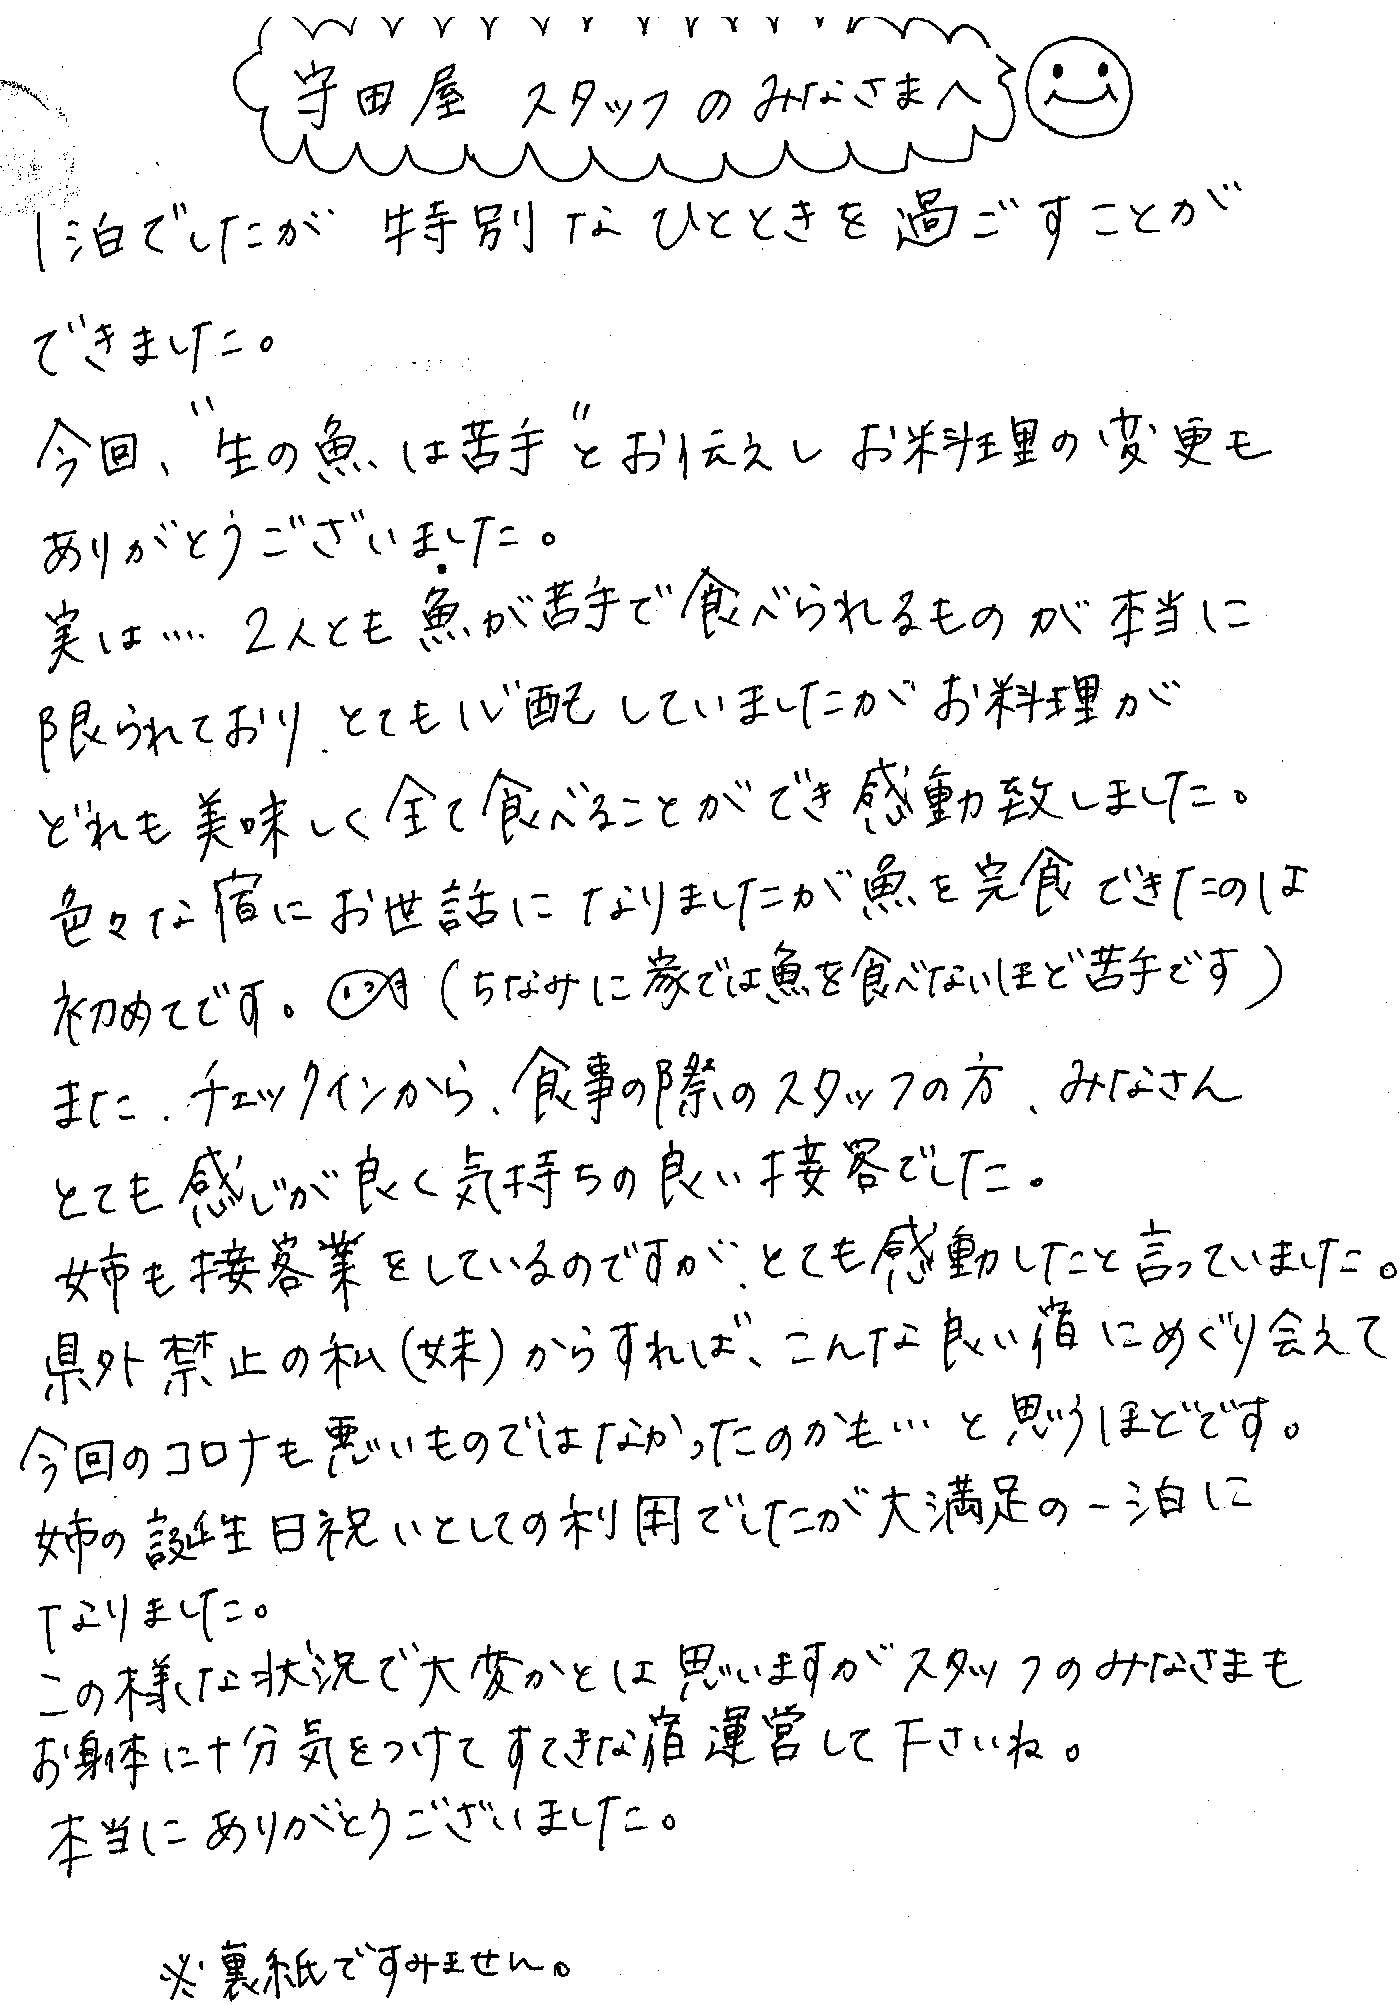 守田屋 スタッフのみなさまへ
1泊でしたが 特別なひとときを過ごすことが
できました。
今回、"生の魚は苦手"とお伝えしお料理の変更も
ありがとうございました。
実は…. 2人とも魚が苦手で食べられるものが本当に
限られており、とても心配していましたがお料理が
どれも美味しく全て食べることができ感動致しました。
色々な宿にお世話になりましたが魚を完食できたのは
初めてです。(ちなみに家では魚を食べないほど苦手です)
また、チェックインから、食事の際のスタッフの方、みなさん
とても感じが良く気持ちの良い接客でした。
姉も接客業をしているのですが、とても感動したと言っていました。
県外禁止の私(妹)からすれば、こんな良い宿にめぐり会えて
今回のコロナも悪いものではなかったのかも…と思うほどです。
姉の誕生日祝いとしての利用でしたが大満足の一泊に
なりました。
この様な状況で大変かとは思いますがスタッフのみなさまも
お身体に十分気をつけてすてきな宿運営して下さいね。
本当にありがとうございました。
※裏紙ですみません。